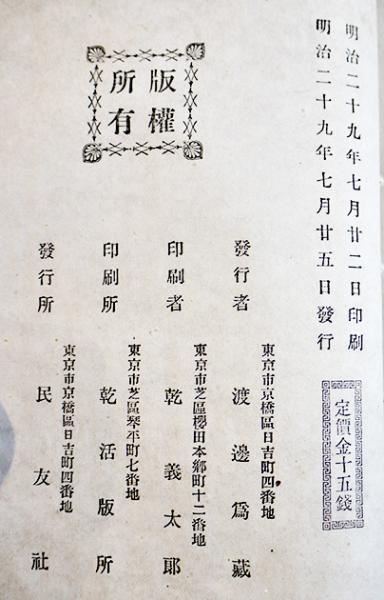 明治二十九年七月廿二日印刷
明治二十九年七月廿五日發行
定價金十五錢
版權
所有
東京市京橋區日吉町四番地
發行者 渡邊爲藏
東京市芝區櫻田本鄉町十二番地
印刷者 乾義太郞
東京市芝區琴平町七番地
印刷所 乾活版所
東京市京橋區日吉町四番地
發行所 民友社